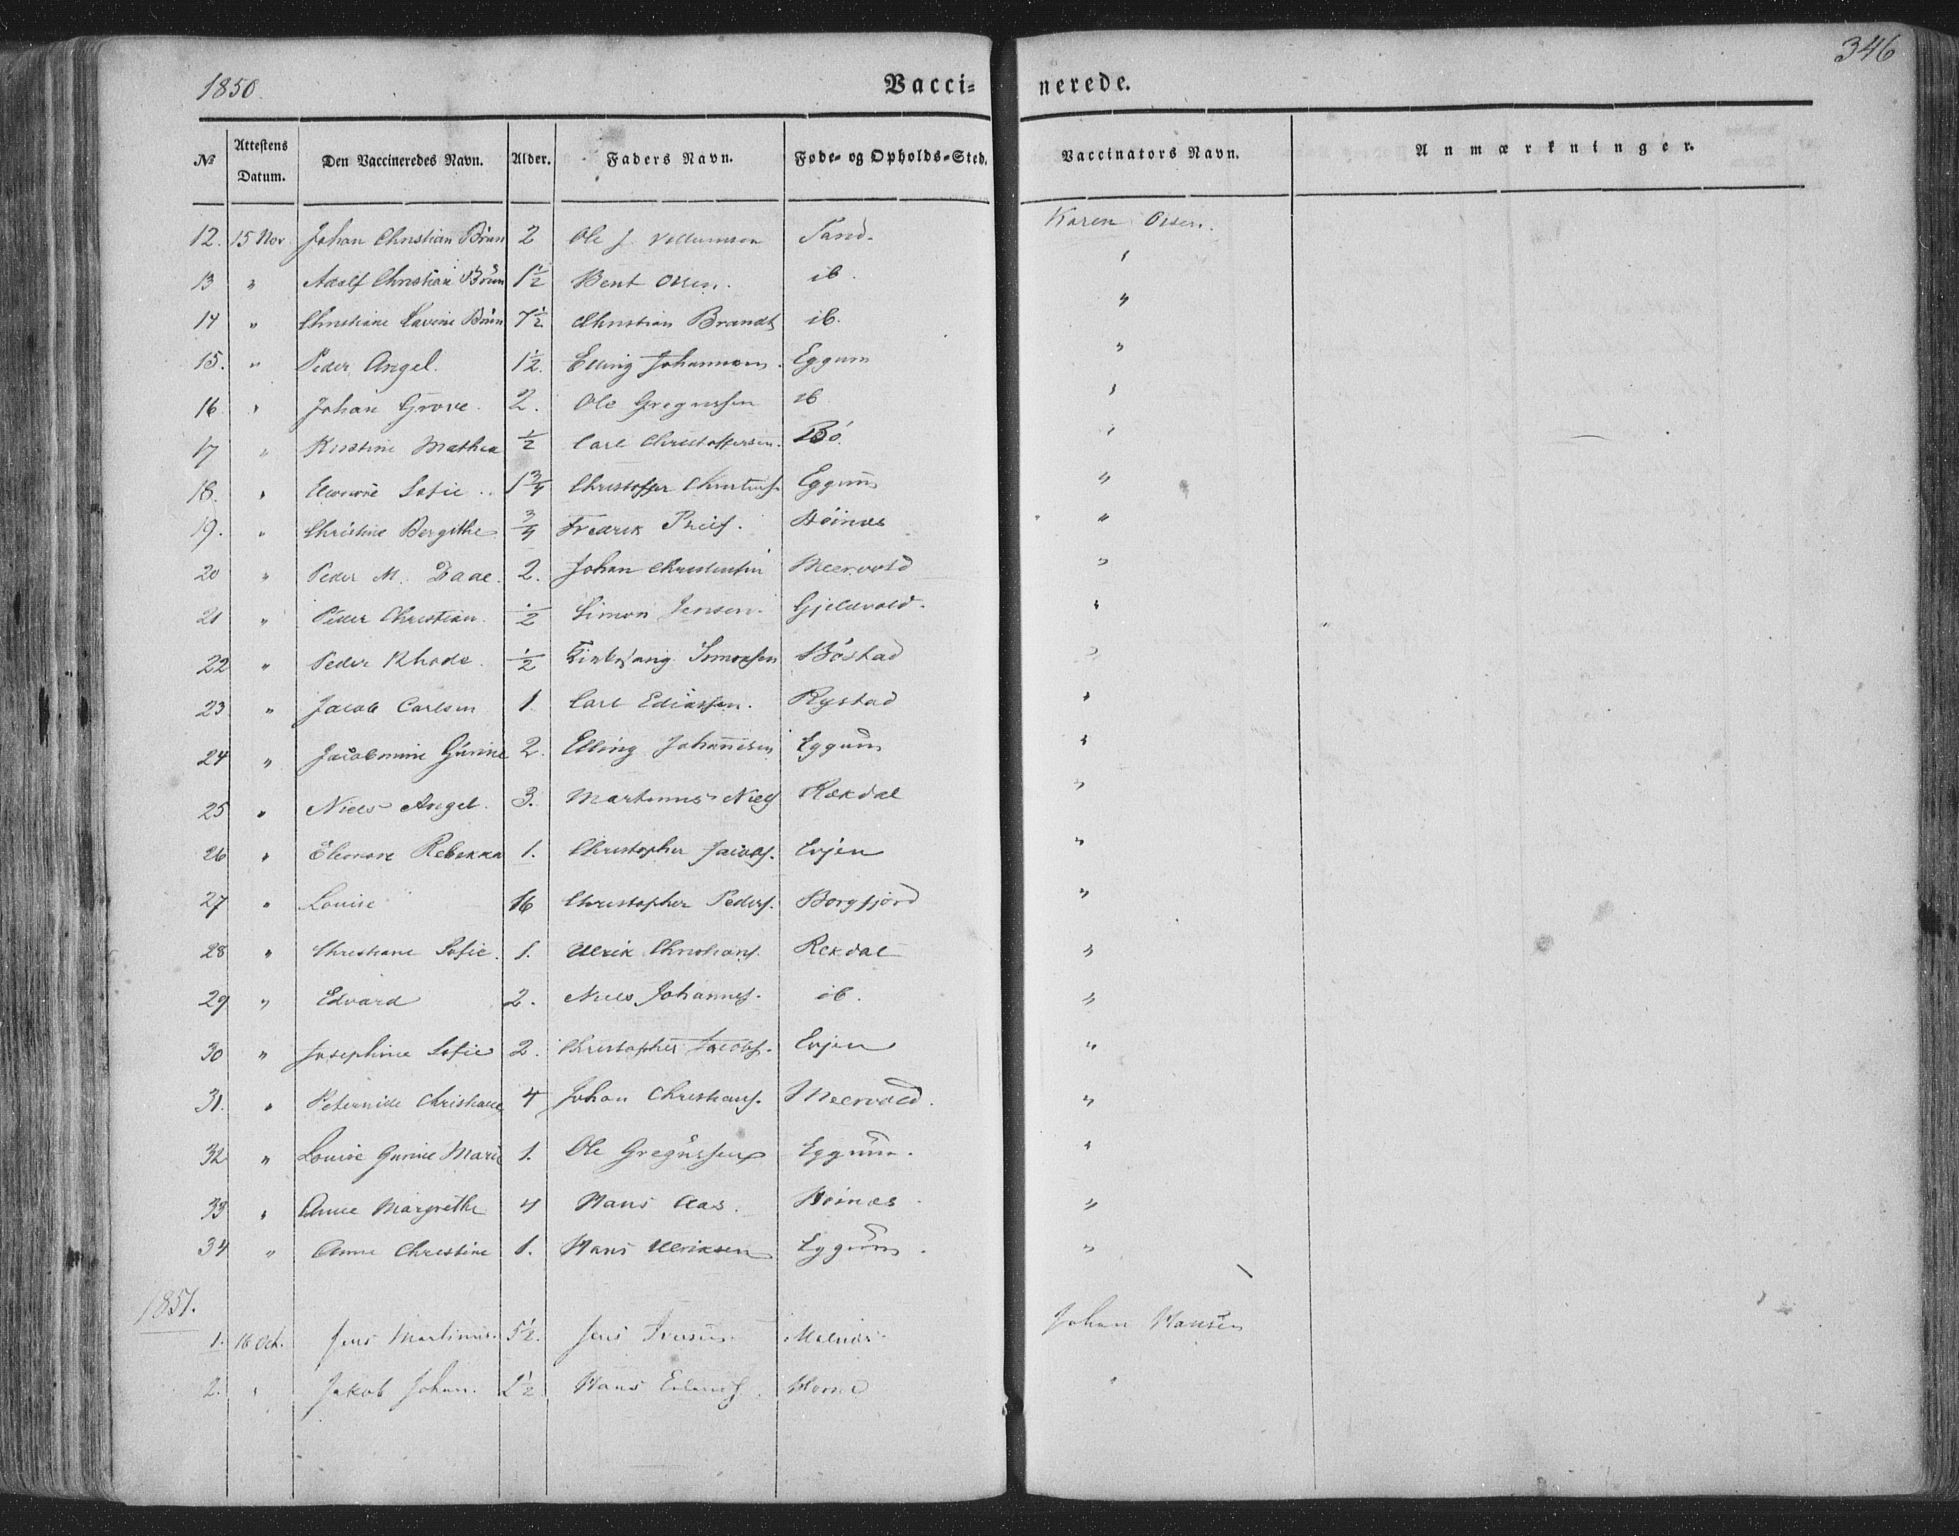 346
1850.
Vacci- nerede.
№ Attestens Datum. Den Vaccineredes Navn. Alder. Faders Navn. Føde- og Opholds-Sted. Vaccinators Navn. Anmærkninger.
12. 15 Nov. Johan Christian Brün 2 Ole J. Sand. Karen Olsen.
13 " Adolf Christian Brün 1½ Bent Olsen. ib. "
14 " Christiane Lavine Brün 7½ Christian Brandt ib. "
15. " Peder Angel. 1½. Elling Johannesen. Eggum "
16 " Johan Grove. 2. Ole Gregussen ib "
17 " Kirstine Mathea ½ Carl Christoffersen. Bö. "
18. " Eleonore Sofie 1¾ Christoffer Eggum "
19. " Christine Bergithe ¾ Fredrik Höinæs "
20 " Peder M. Daae. 2. Johan Meervold "
21 " Peder Christian. ½ Simon Jensen. Gjeldvold. "
22 " Peder Rhode. ½ Simonsen Böstad "
23 " Jacob Carlsen 1. Carl Rystad "
24 " Jacobmine Gurine 2. Elling Johannesen Eggum "
25 " Niels Angel. 3. Martinus Niels Rekdal "
26 " Eleonore Rebekka 1. Christopher Jacobs. Evjen "
27 " Louise 16 Christopher Peders. Borgfjord "
28 " Christiane Sofie. 1. Ulrik Christians. Rekdal "
29 " Edvard 2. Niels Johannes. ib. "
30 " Josephine Sofie 2. Christopher Jacobs. Evjen "
31. " Peternille Christiane 4 Johan Christians. Meervold. "
32 " Louise Gurine Marie 1. Ole Gregussen Eggum. "
33 " Anne Margrethe 4 Hans Aas. Höinæs. "
34 " Anne Christine 1. Hans Ulriksen Eggum. "
1851.
1. 16 Oct. Jens Martinus. 5½. Jens Iversen Malnæs. Johan Hansen
2. " Jakob Johan. Hans "